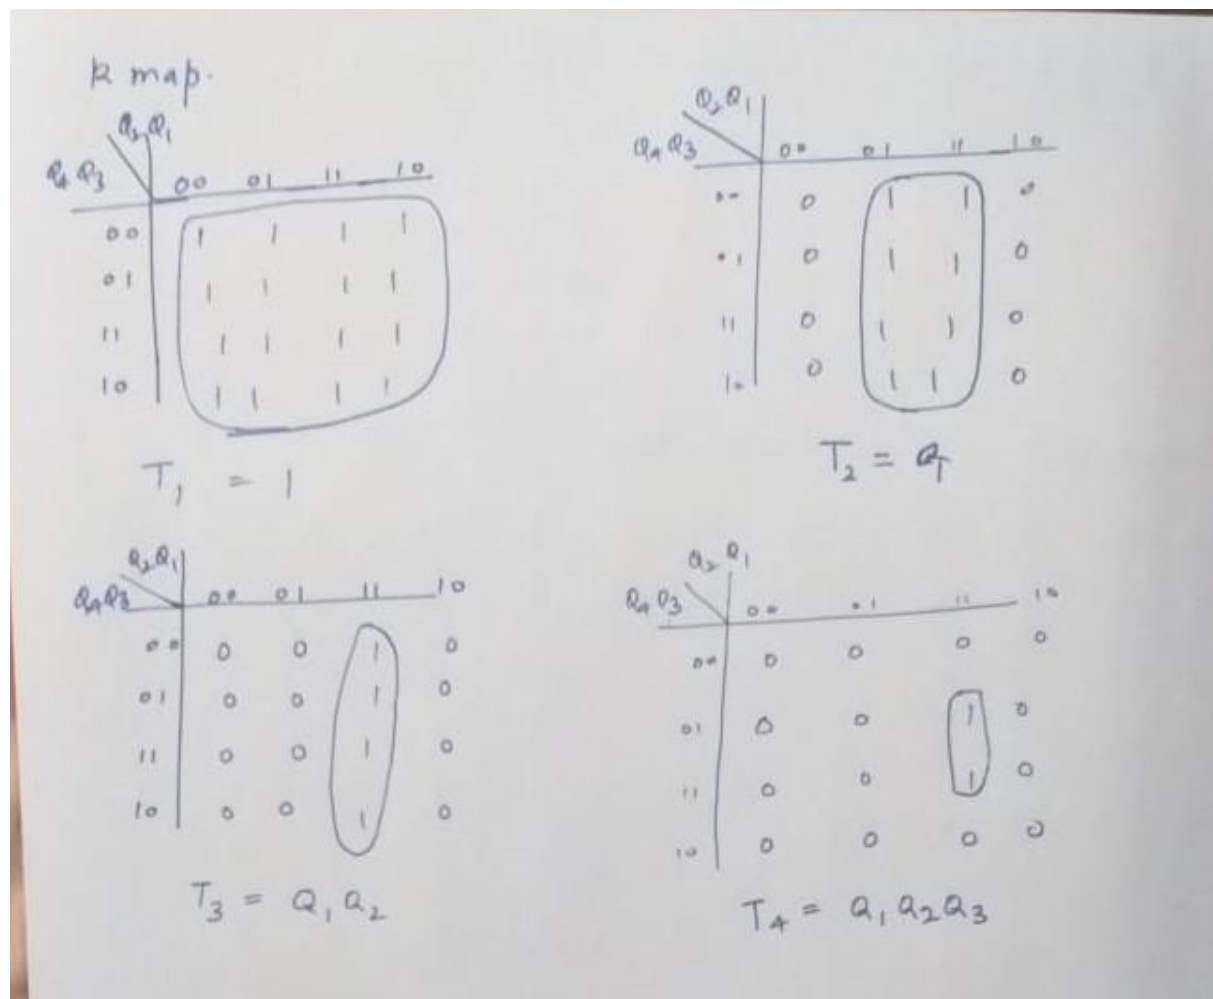 k map.
Q₂Q₁
Q₄Q₃ 00 01 11 10
00 1 1 1 1
01 1 1 1 1
11 1 1 1 1
10 1 1 1 1
T₁ = 1
Q₂Q₁
Q₄Q₃ 00 01 11 10
00 0 1 1 0
01 0 1 1 0
11 0 1 1 0
10 0 1 1 0
T₂ = Q₁
Q₂Q₁
Q₄Q₃ 00 01 11 10
00 0 0 1 0
01 0 0 1 0
11 0 0 1 0
10 0 0 1 0
T₃ = Q₁Q₂
Q₂Q₁
Q₄Q₃ 00 01 11 10
00 0 0 0 0
01 0 0 1 0
11 0 0 1 0
10 0 0 0 0
T₄ = Q₁Q₂Q₃